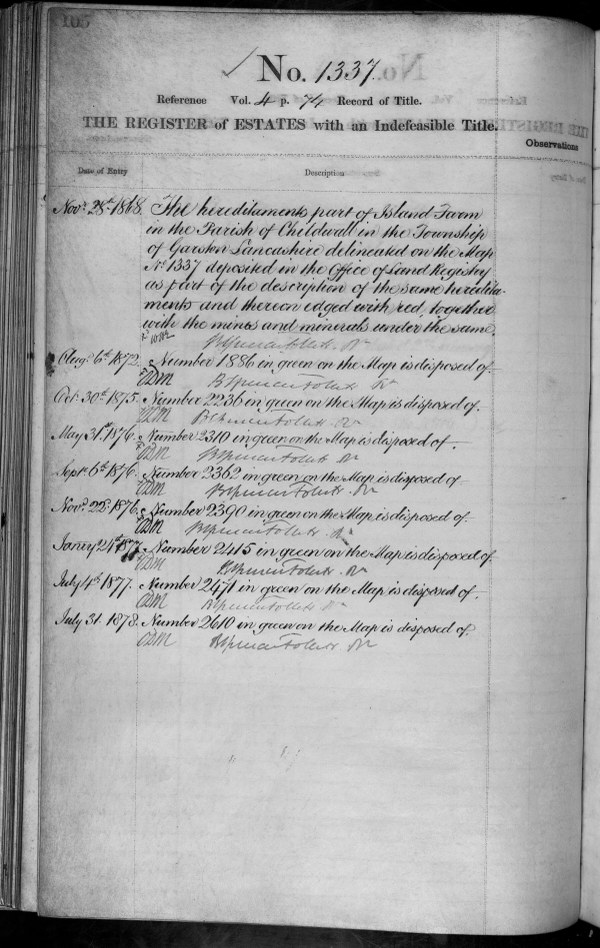 105
No. 1337.
Reference Vol. 4 p. 74 Record of Title.
THE REGISTER of ESTATES with an Indefeasible Title.
Observations
Date of Entry Description
Novr. 28th. 1868. The hereditaments part of Island Farm
in the Parish of Childwall in the Township
of Garston Lancashire delineated on the Map
No. 1337 deposited in the Office of Land Registry
as part of the description of the same heredita-
ments and thereon edged with red, together
with the mines and minerals under the same.
Augt. 6th. 1872. Number 1886 in green on the Map is disposed of.
Oct. 30th. 1875. Number 2236 in green on the Map is disposed of.
May 31st. 1876. Number 2310 in green on the Map is disposed of.
Septr. 6th. 1876. Number 2362 in green on the Map is disposed of
Novr. 22d. 1876. Number 2390 in green on the Map is disposed of.
Janry 24th. 1877. Number 2415 in green on the Map is disposed of.
July 4th. 1877. Number 2471 in green on the Map is disposed of.
July 31. 1878. Number 2610 in green on the Map is disposed of.